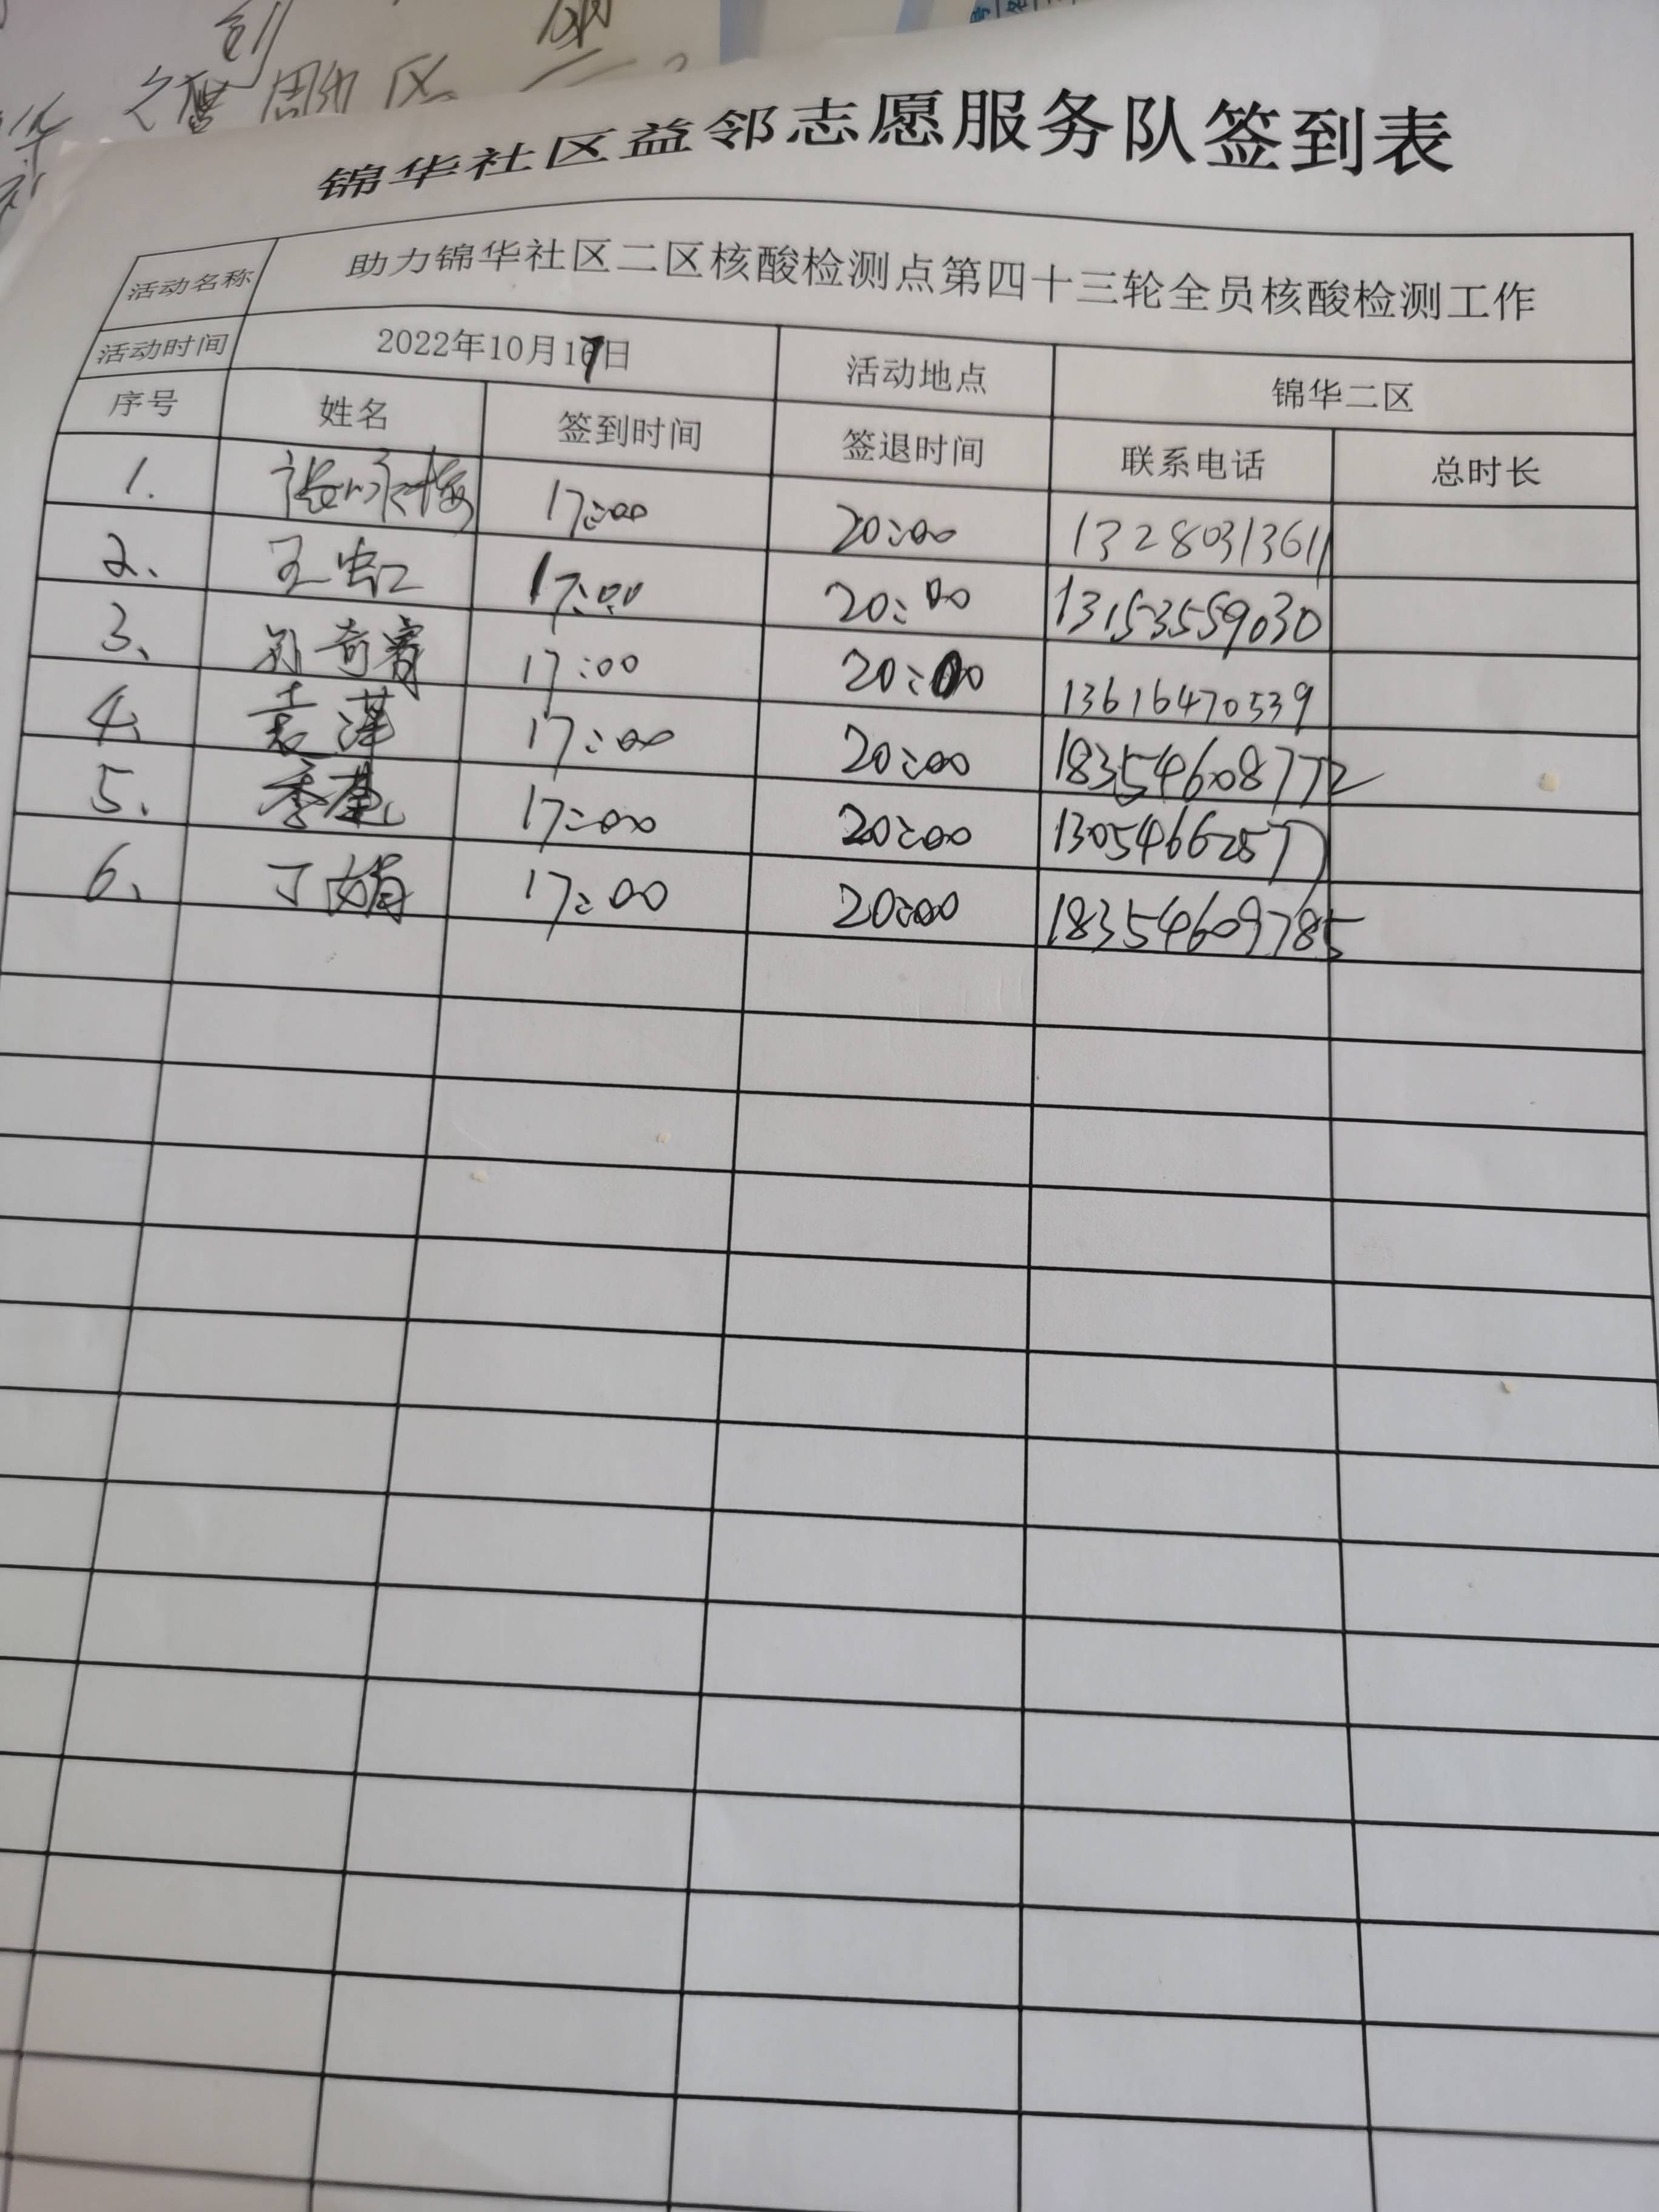 锦华社区益邻志愿服务队签到表
活动名称 助力锦华社区二区核酸检测点第四十三轮全员核酸检测工作
活动时间 2022年10月17日 活动地点 锦华二区
序号 姓名 签到时间 签退时间 联系电话 总时长
1. 张咏梅 17:00 20:00 13280313611
2、 王虹 17:00 20:00 13153559030
3、 17:00 20:00 13616470539
4、 袁萍 17:00 20:00 18354608772
5、 17:00 20:00 13054662577
6、 丁娟 17:00 20:00 18354609785